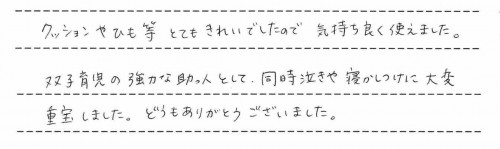 クッションやひも等 とてもきれいでしたので 気持ち良く使えました。
双子育児の強力な助っ人として、同時泣きや寝かしつけに大変
重宝しました。どうもありがとうございました。